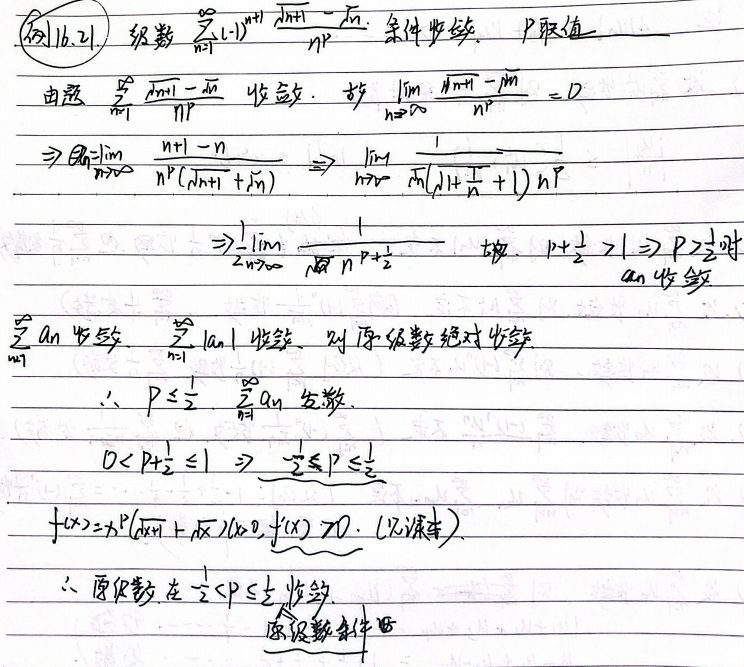 例16.21. 级数 ∑_{n=1}^{∞} (-1)^{n+1} (√(n+1) - √n)/n^p. 条件收敛. P取值
由题 ∑_{n=1}^{∞} (√(n+1) - √n)/n^p 收敛. 故 lim_{n→∞} (√(n+1) - √n)/n^p = 0
⇒ = lim_{n→∞} (n+1-n)/(n^p(√(n+1) + √n)) ⇒ lim_{n→∞} 1/(√n(√(1+1/n) + 1) n^p)
⇒ 1/2 lim_{n→∞} 1/n^{p+1/2} 故. p+1/2 > 1 ⇒ P > 1/2 时
an 收敛
∑_{n=1}^{∞} an 收敛. ∑_{n=1}^{∞} |an| 收敛. 则原级数绝对收敛.
∴ P ≤ 1/2. ∑_{n=1}^{∞} an 发散.
0 < P+1/2 ≤ 1 ⇒ -1/2 ≤ P ≤ 1/2
f(x) = x^p(√(x+1) + √x) (x>0, f'(x) >0. (见课本).
∴ 原级数在 -1/2 < P ≤ 1/2 收敛.
原级数条件